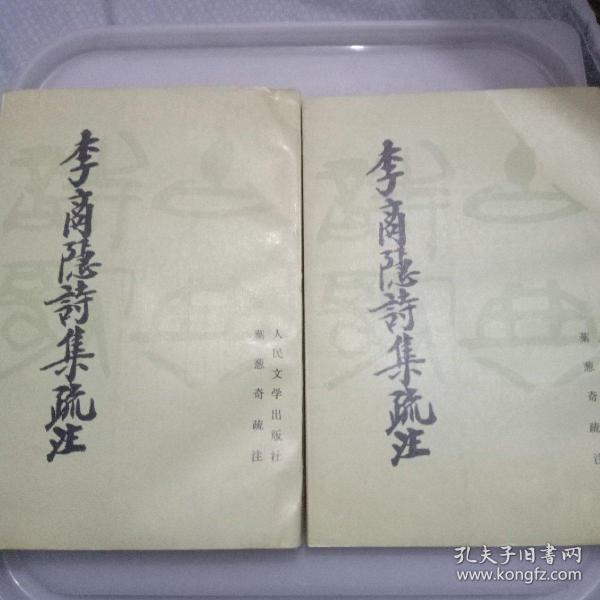 李商隱詩集疏注
人民文学出版社
葉葱奇疏注
李商隱詩集疏注
葉葱奇疏注
孔夫子旧书网
www.kongfz.com